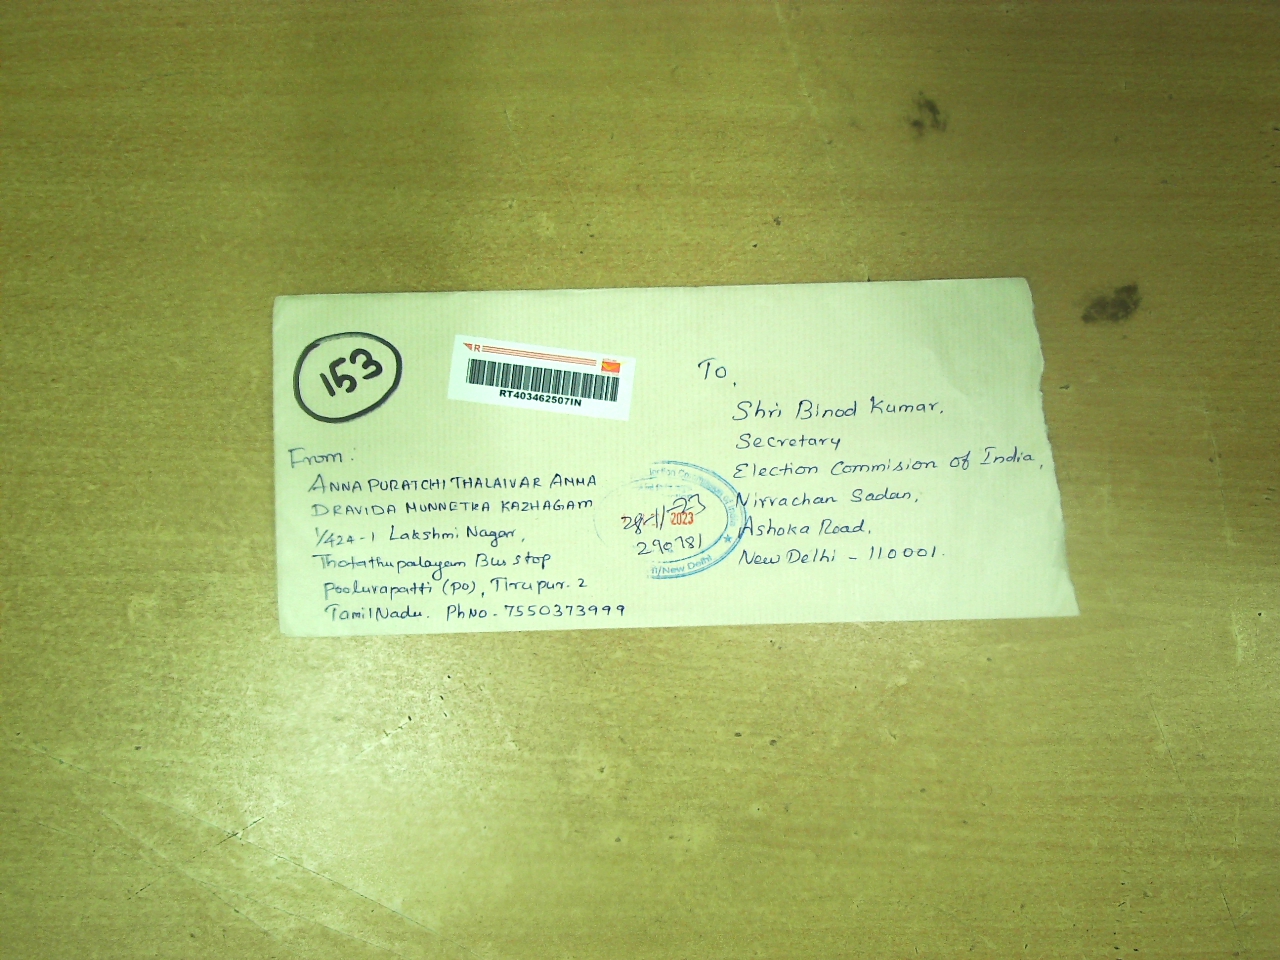 153
R
RT403462507IN
From:
ANNA PURATCHI THALAIVAR AMMA
DRAVIDA MUNNETRA KAZHAGAM
1/424-1 Lakshmi Nagar,
Thotathupalayam Bus stop
Pooluvapatti (PO), Tirupur-2
TamilNadu. PhNo-7550373999
To,
Shri Binod Kumar,
Secretary
Election Commision of India,
Nirvachan Sadan,
Ashoka Road,
New Delhi - 110001.
2023
290781
/New Delhi